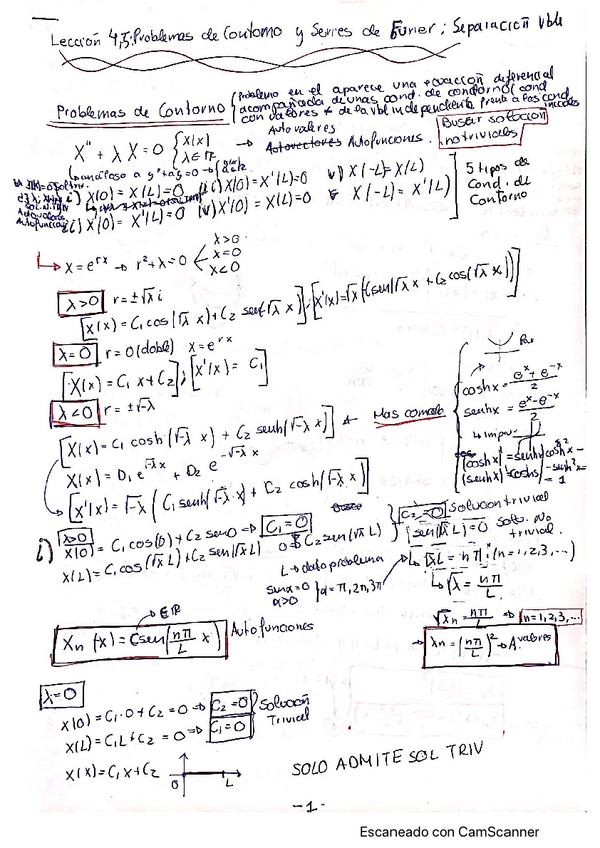 Lección 4,5: Problemas de Contorno y Series de Fourier; Separación vble
Problemas de Contorno { Problemo en el aparece una ecuación diferencial
acompañada de unas cond. de condorno (cond
con valores ≠ de la vbl independiente frente a las cond iniciales
X'' + λX = 0 { X(x) λ ∈ ℝ → Autovalores Autovectores Autofunciones. Buscar solución no triviales
i) X(0) = X(L) = 0 iii) X(0) = X'(L) = 0 v) X(-L) = X(L)
ii) X(0) = X'(L) = 0 iv) X'(0) = X(L) = 0 X'(-L) = X'(L)
5 tipos de Cond. de Contorno
X = e^rx → r² + λ = 0 < λ>0 λ=0 λ<0
λ>0 r = ±√λ i
[X(x) = C₁ cos(√λ x) + C₂ sen(√λ x)] [X'(x) = √λ (-C₁ sen(√λ x) + C₂ cos(√λ x))]
λ=0 r = 0 (doble) X = e^rx
[X(x) = C₁ x + C₂]; [X'(x) = C₁]
λ<0 r = ±√-λ
[X(x) = C₁ cosh(√-λ x) + C₂ senh(√-λ x)] ← Mas comodo
X(x) = D₁ e^√-λ x + D₂ e^-√-λ x
[X'(x) = √-λ (C₁ senh(√-λ x) + C₂ cosh(√-λ x))]
Par
coshx = e^x + e^-x / 2
senhx = e^x - e^-x / 2
↳ Impar
(coshx)' = senhx
(senhx)' = coshx
cosh² - senh² = 1
i) λ>0
X(0) = C₁ cos(0) + C₂ sen0 ⇒ C₁ = 0
X(L) = C₁ cos(√λ L) + C₂ sen(√λ L) 0 = C₂ sen(√λ L)
C₂ = 0 Solucion trivial
sen(√λ L) = 0 Solu. No trivial.
L → dato problema
senα = 0 α>0 } α = π, 2π, 3π
√λL = nπ (n = 1, 2, 3, ...)
↳ √λ = nπ/L
→ ∈ ℝ
Xn(x) = C sen(nπ/L x) Autofunciones
√λn = nπ/L ⇒ n = 1, 2, 3, ...
→ λn = (nπ/L)² → A.valores
λ=0
X(0) = C₁·0 + C₂ = 0 ⇒ C₂ = 0
X(L) = C₁L + C₂ = 0 ⇒ C₁ = 0
} Solución Trivial
X(x) = C₁x + C₂
0 L
SOLO ADMITE SOL TRIV
-1-
Escaneado con CamScanner